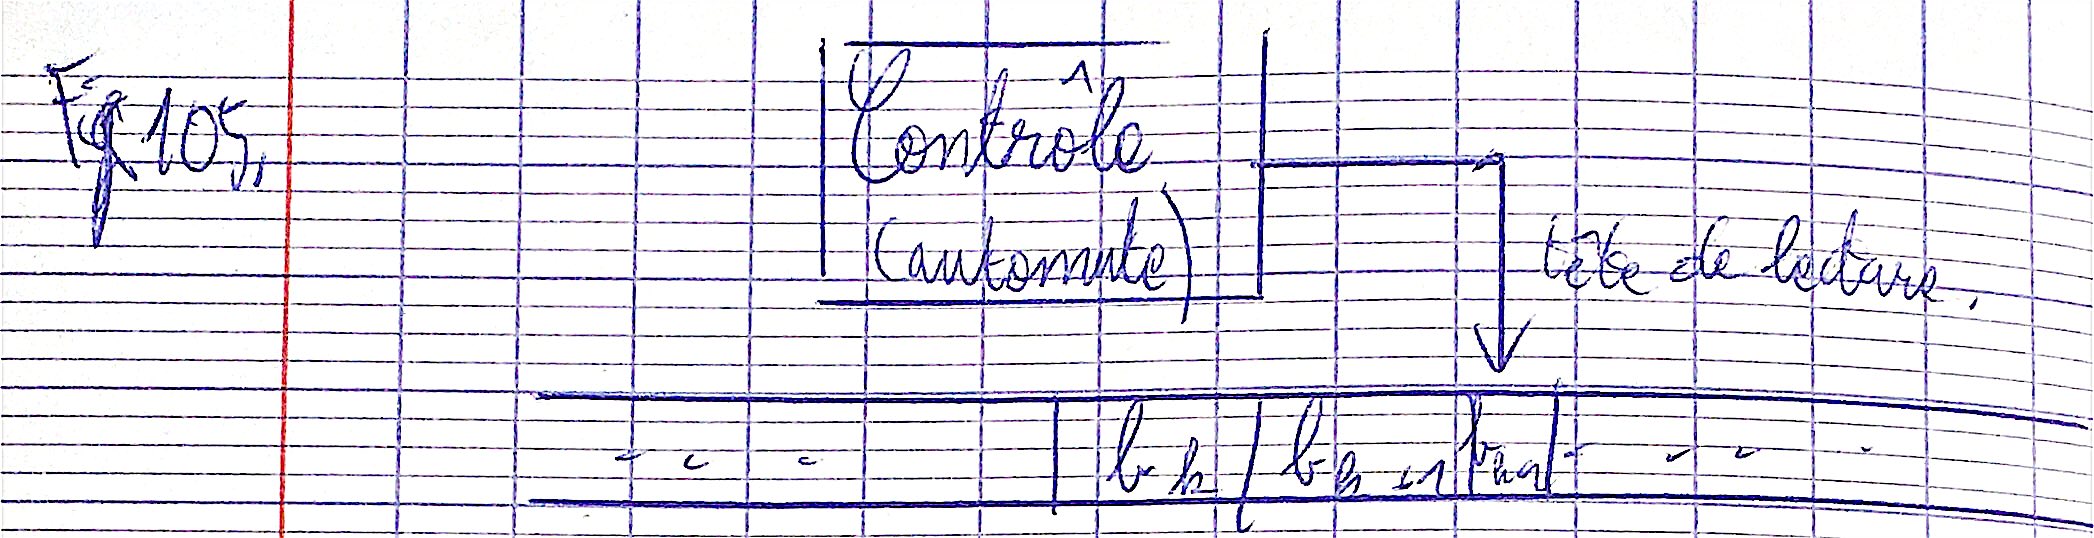 Fig 105,
Contrôle
(automate)
tête de lecture.
- - - | b h / b h - 1 | b h | - - - -